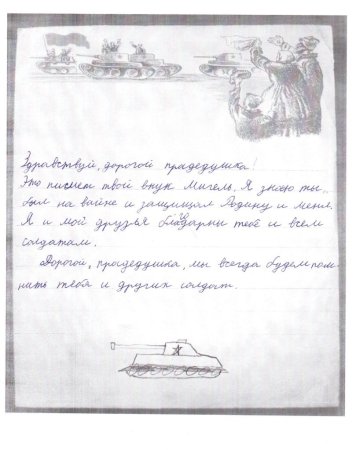 Здравствуй, дорогой прадедушка!
Это пишет твой внук Мигель. Я знаю ты
был на вайне и защищал Родину и меня.
Я и мой друзья благодарны тебе и всем
солдатам.
Дорогой, прадедушка, мы всегда будем пом-
нить тебя и других солдат.